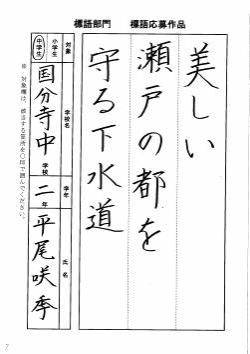 標語部門　標語応募作品
美しい
瀬戸の都を
守る下水道
対象
小学生
中学生
学校名
国分寺中
学校
学年
二
年
氏名
平尾咲季
※対象欄は、該当する箇所を〇印で囲んでください。
7